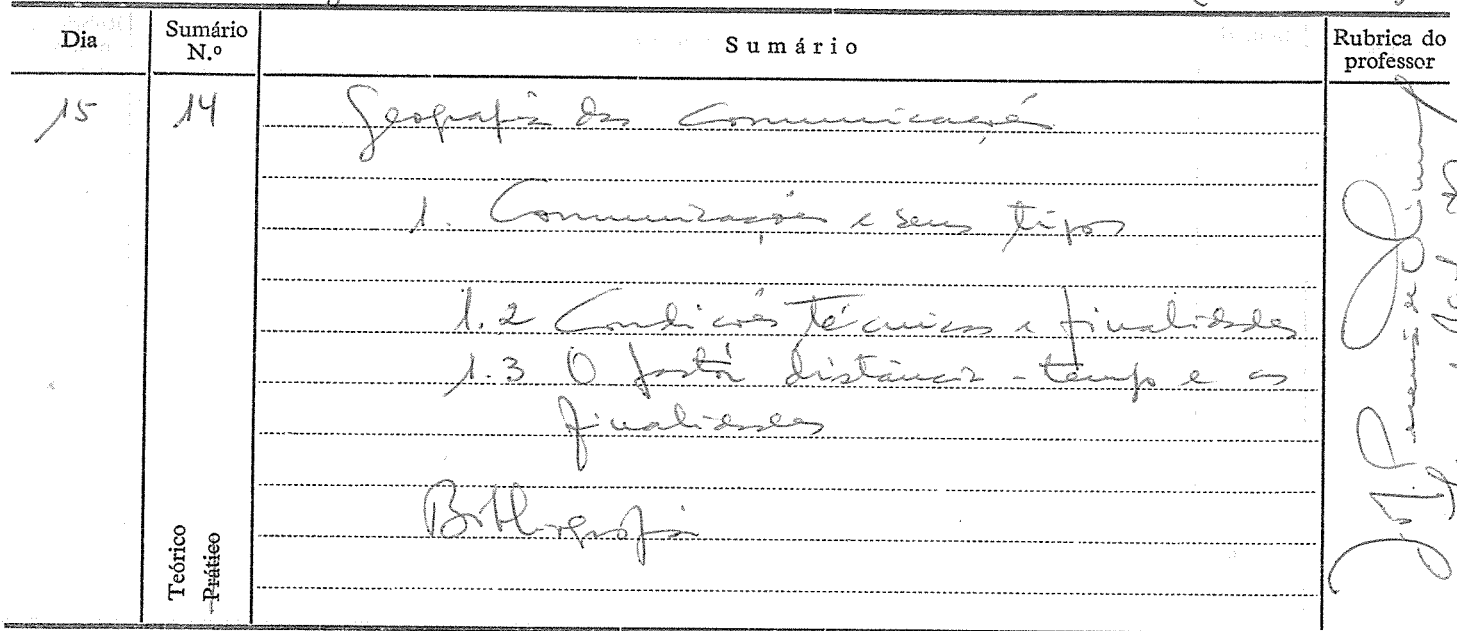 Dia
Sumário
N.º
Sumário
Rubrica do
professor
15
14
Geografia das Comunicações
1. Comunicações e seus tipos
1.2 Condições técnicas e finalidades
1.3 O fator distância - tempo e as
finalidades
Bibliografia
Teórico
Prático